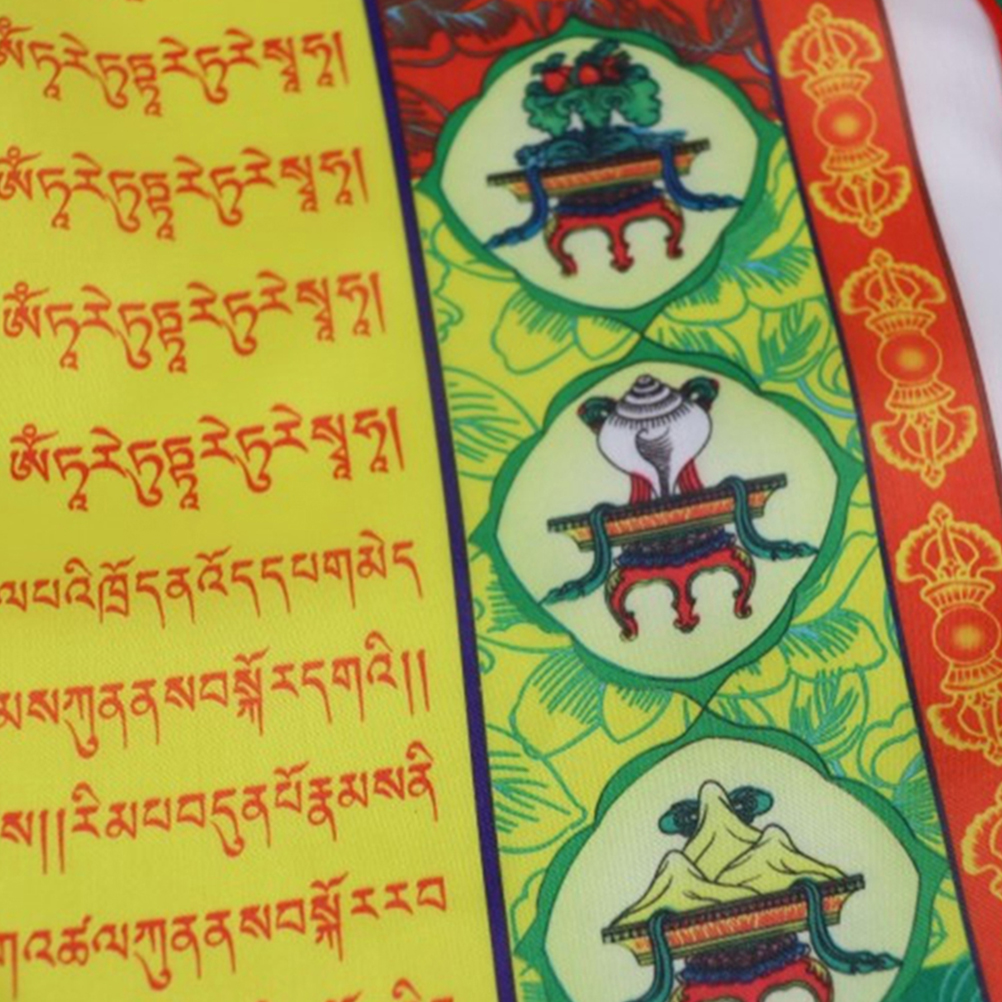 ༀཏཱརེཏུཏྟཱརེཏུརེསྭཱཧཱ།
ༀཏཱརེཏུཏྟཱརེཏུརེསྭཱཧཱ།
ༀཏཱརེཏུཏྟཱརེཏུརེསྭཱཧཱ།
ༀཏཱརེཏུཏྟཱརེཏུརེསྭཱཧཱ།
ལཔའིཁྲོདནའོདདཔགམེད
མསཀུནནསབསྐོརདགའི།།
ས།།རིམཔབདུནཔོརྣམསནི
གའཚལཀུནནསབསྐོརརབ